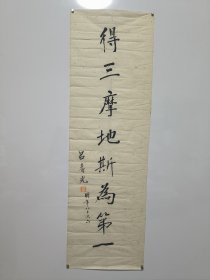 得三摩地斯為第一